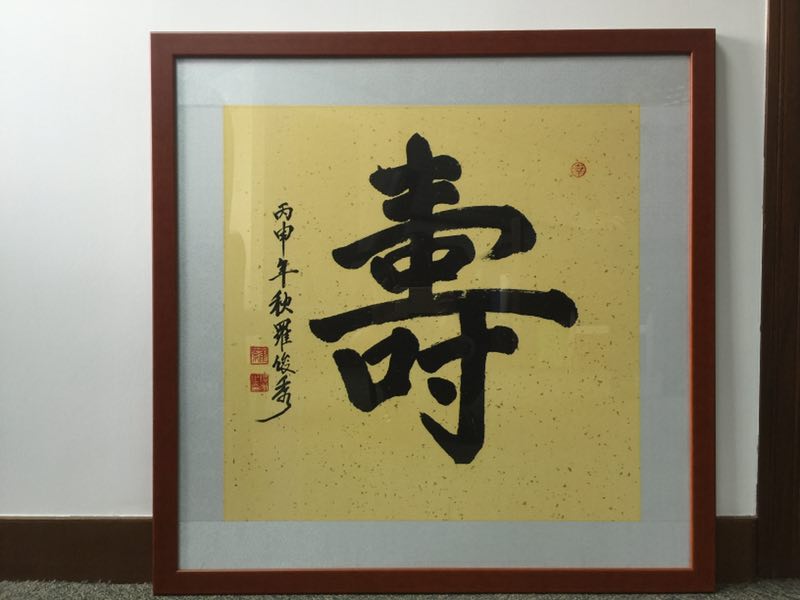 壽
丙申年秋羅俊秀